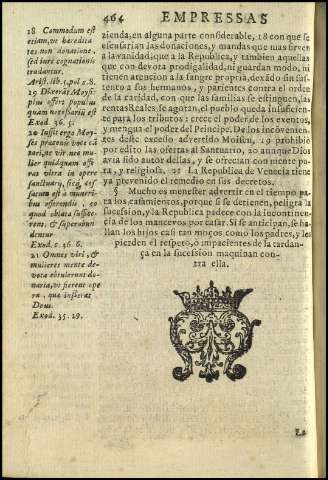 464 EMPRESSAS
18 Commodum est
etiam, ut heredita
tes non donatione,
sed iure cognationis
tradantur.
Arist. lib. 5. pol. c. 8.
19 Dixerūt Moysi:
plus offert populus
quam necessariū est
Exod. 36. 5.
20 Iussit ergo Moy-
ses præconis voce cā
tari, nec vir nec mu
lier quidquam offe
rat vltra in opere
sanctuary, sicq, ces
satum est à muneri
bus offerendis, eo
quod oblata suffice
rent, & superabun
darent
Exod. c. 36. 6.
21 Omnes viri, &
mulieres mente de
vota obtulerunt do
naria, vt fierent ope
ra, que iusserat
Deus.
Exod. 35. 29.
zienda, en alguna parte considerable, 18 con que se
escusarian las donaciones, y mandas que mas sirven
a la vanidad, que a la Republica, y tambien aquellas
que con devota prodigalidad, ni guardan modo, ni
tienen atencion a la sangre propria, dexādo sin sus-
tento a sus hermanos, y parientes contra el orden
de la caridad, con que las familias se estinguen, las
rentas Reales se agotan, el pueblo queda insuficien-
te para los tributos: crece el poder de los exentos,
y mengua el poder del Principe. De los incovenien-
tes deste excesso advertido Moisen, 19 prohibiò
por edito las ofertas al Santuario, 20 aunque Dios
avia sido autor dellas, y se ofrecian con mente pu-
ra, y religiosa. 21 La Republica de Venecia tiene
ya prevenido el remedio en sus decretos.
§ Mucho es menester advertir en el tiempo pa-
ra los casamientos, porque si se detienen, peligra la
sucesion, y la Republica padece con la incontinen-
cia de los mancevos por casar. Si se anticipan, se ha-
llan los hijos casi tan moços como los padres, y les
pierden el respeto, o impacientes de la tardan-
ça en la sucession maquinan con-
tra ella.